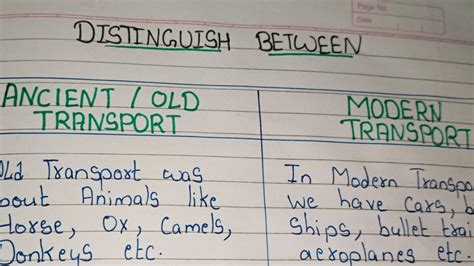 Page No:
Date
DISTINGUISH BETWEEN
ANCIENT / OLD
TRANSPORT
MODERN
TRANSPORT
Old Transport was
bout Animals like
Horse, Ox, Camels,
Donkeys etc.
In Modern Transp
we have Cars, b
Ships, bullet trai
aeroplanes etc.